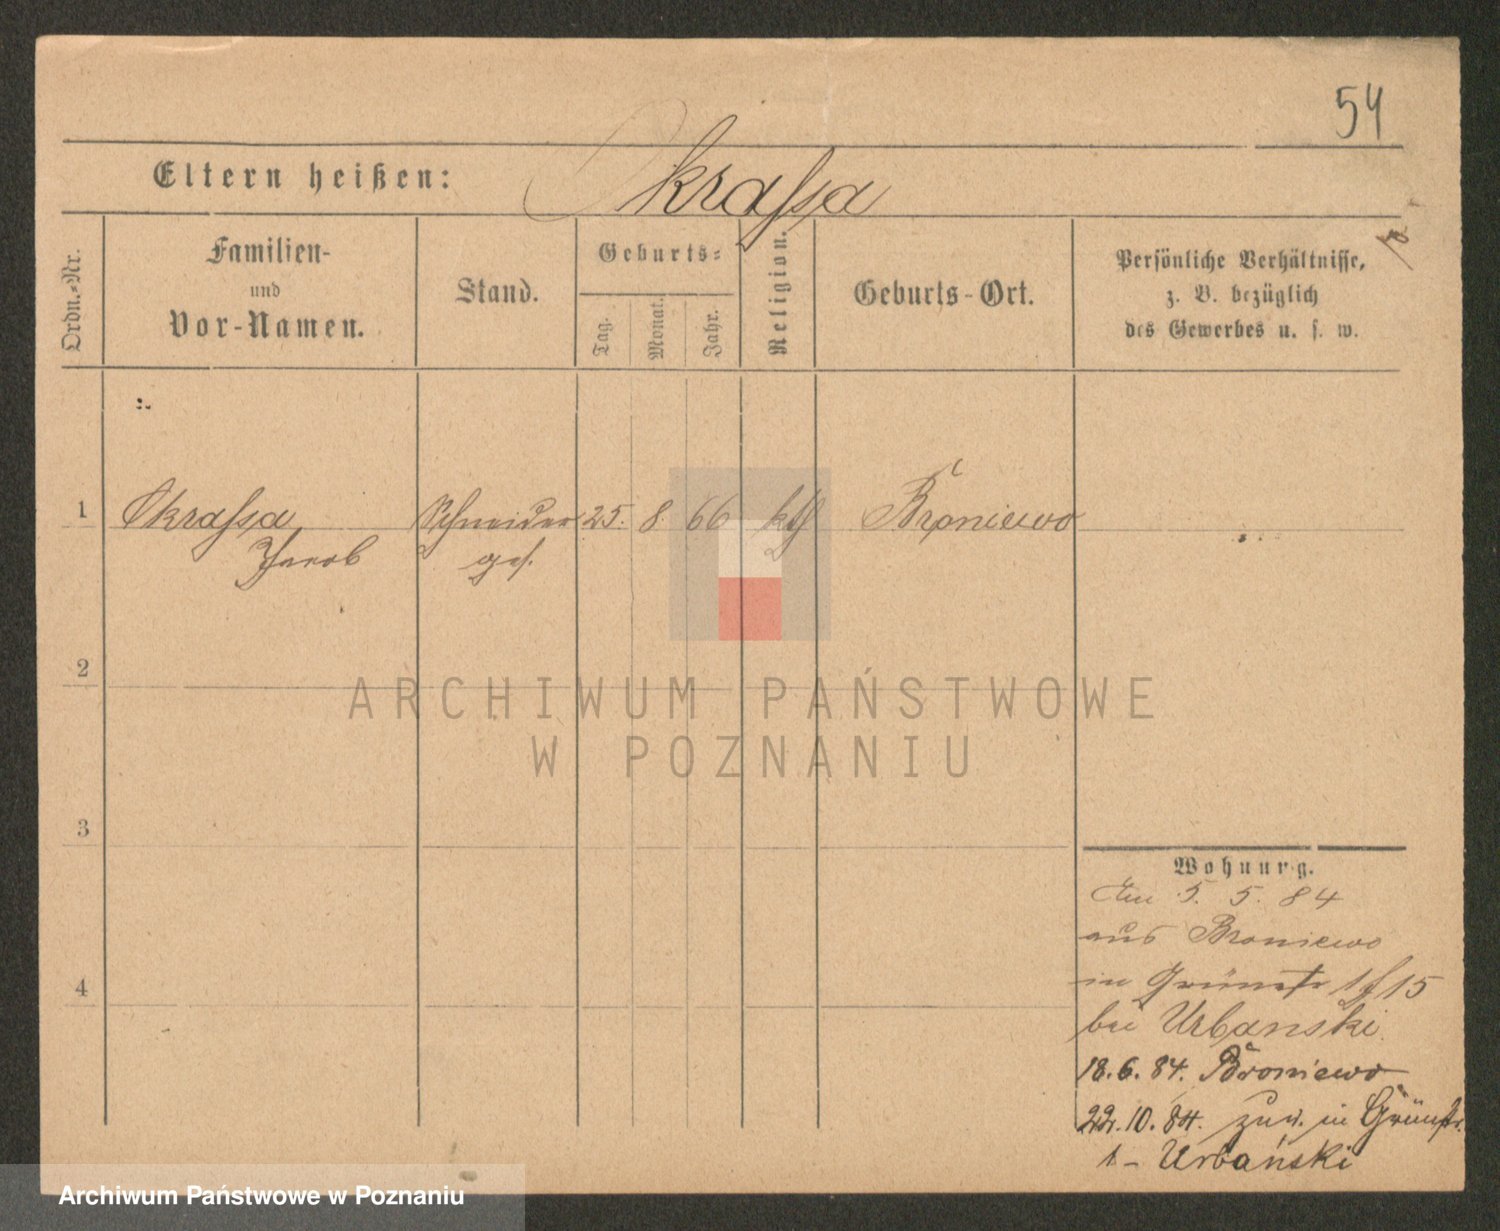 54
Eltern heißen: Skrassa
Ordn.-Nr.
Familien-
und
Vor-Namen.
Stand.
Geburts-
Tag.
Monat.
Jahr.
Religion.
Geburts-Ort.
Persönliche Verhältnisse,
z. B. bezüglich
des Gewerbes u. s. w.
1 Skrassa Schneider 25. 8. 66 kth Broniewo
Jacob ges.
2
ARCHIWUM PAŃSTWOWE
W POZNANIU
3
4
Wohnung.
5. 5. 84
aus Broniewo
in Grünstr 1 15
bei Urbanski
18. 6. 84. Broniewo
22. 10. 84. zur. in Grünstr.
1 - Urbański
Archiwum Państwowe w Poznaniu